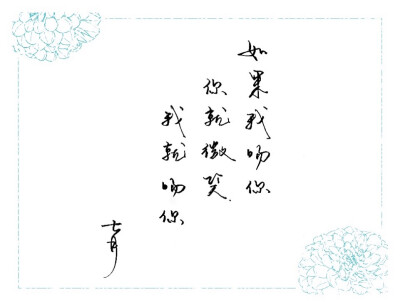 如果我吻你
你就微笑.
我就吻你
七月